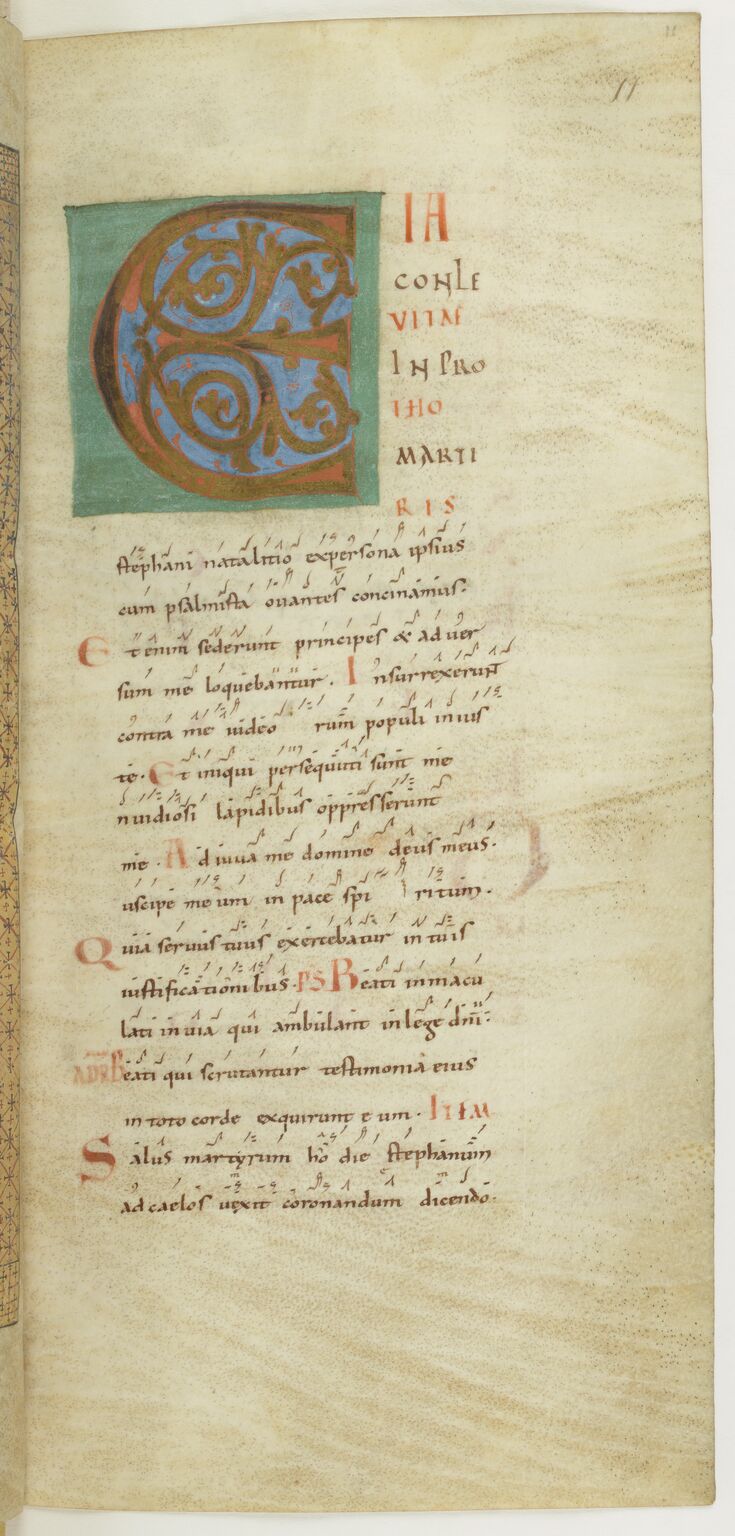 11
11
E IA
CONLE
VITAE
IN PRO
THO
MARTI
RIS
stephani natalitio ex persona ipsius
cum psalmista ovantes concinamus.
Etenim sederunt principes & adver
sum me loquebantur. Insurrexerunt
contra me iudeo rum populi inius
te. Et iniqui persequuti sunt me
nuidiosi lapidibus oppresserunt
me. Adiuva me domine deus meus.
uscipe meum in pace spi ritum.
Quia servus tuus exercebatur in tuis
iustificationibus. PS Beati inmacu
lati in via qui ambulant in lege dni.
AD R Beati qui scrutantur testimonia eius
in toto corde exquirunt eum. ITEM
Salus martyrum ho die stephanum
ad caelos vexit coronandum dicendo.